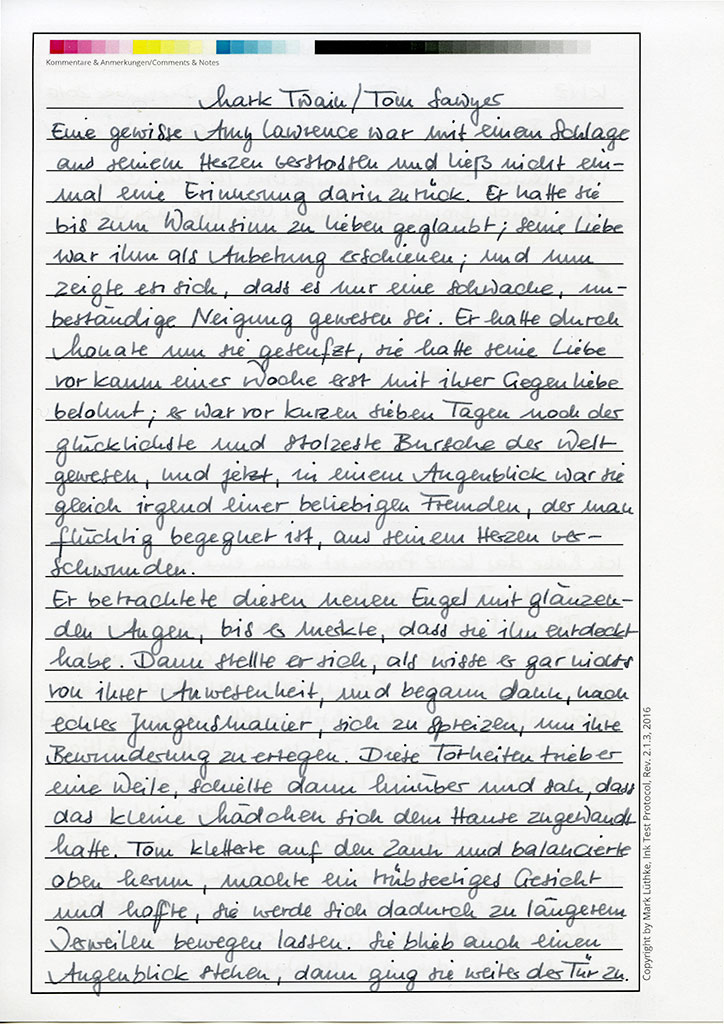 Kommentare & Anmerkungen/Comments & Notes
Mark Twain/Tom Sawyer
Eine gewisse Amy Lawrence war mit einem Schlage
aus seinem Herzen verstossen und ließ nicht ein-
mal eine Erinnerung darin zurück. Er hatte sie
bis zum Wahnsinn zu lieben geglaubt; seine Liebe
war ihm als Anbetung erschienen; und nun
zeigte es sich, dass es nur eine schwache, un-
beständige Neigung gewesen sei. Er hatte durch
Monate um sie geseufzt, sie hatte seine Liebe
vor kaum einer Woche erst mit ihrer Gegenliebe
belohnt; er war vor kurzen sieben Tagen noch der
glücklichste und stolzeste Bursche der Welt
gewesen, und jetzt, in einem Augenblick war sie
gleich irgend einer beliebigen Fremden, der man
flüchtig begegnet ist, aus seinem Herzen ver-
schwunden.
Er betrachtete diesen neuen Engel mit glänzen-
den Augen, bis er merkte, dass sie ihn entdeckt
habe. Dann stellte er sich, als wisse er gar nichts
von ihrer Anwesenheit, und begann dann, nach
echter Jungensmanier, sich zu spreizen, um ihre
Bewunderung zu erregen. Diese Torheiten trieb er
eine Weile, schielte dann hinüber und sah, dass
das kleine Mädchen sich dem Hause zugewandt
hatte. Tom kletterte auf den Zaun und balancierte
oben herum, machte ein trübseeliges Gesicht
und hoffte, sie werde sich dadurch zu längerem
Verweilen bewegen lassen. Sie blieb auch einen
Augenblick stehen, dann ging sie weiter der Tür zu.
Copyright by Mark Lüthke, Ink Test Protocol, Rev. 2.1.3, 2016